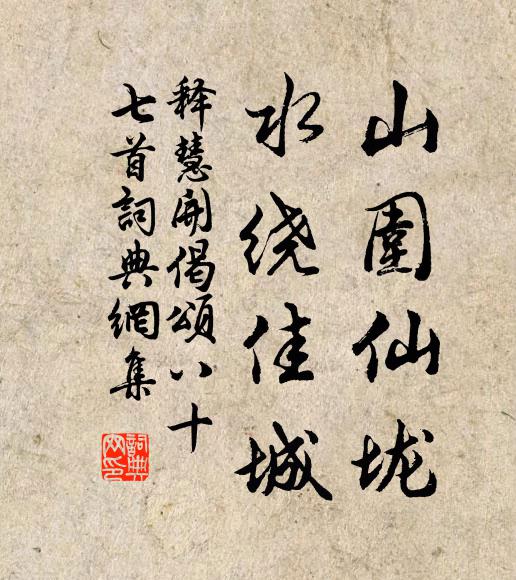 山圍仙垅
水绕佳城
释慧開偈頌八十
七首詞典網集
詞典网印